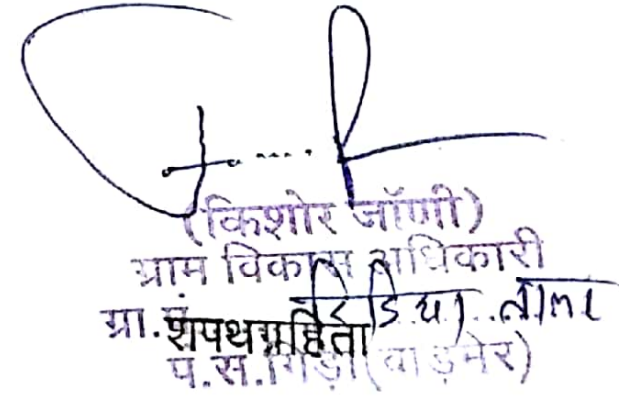 (किशोर जॉणी)
ग्राम विकास अधिकारी
ग्रा.पं. डिया ताला
शपथग्रहिता
प.स.गिड़ा(बाड़मेर)